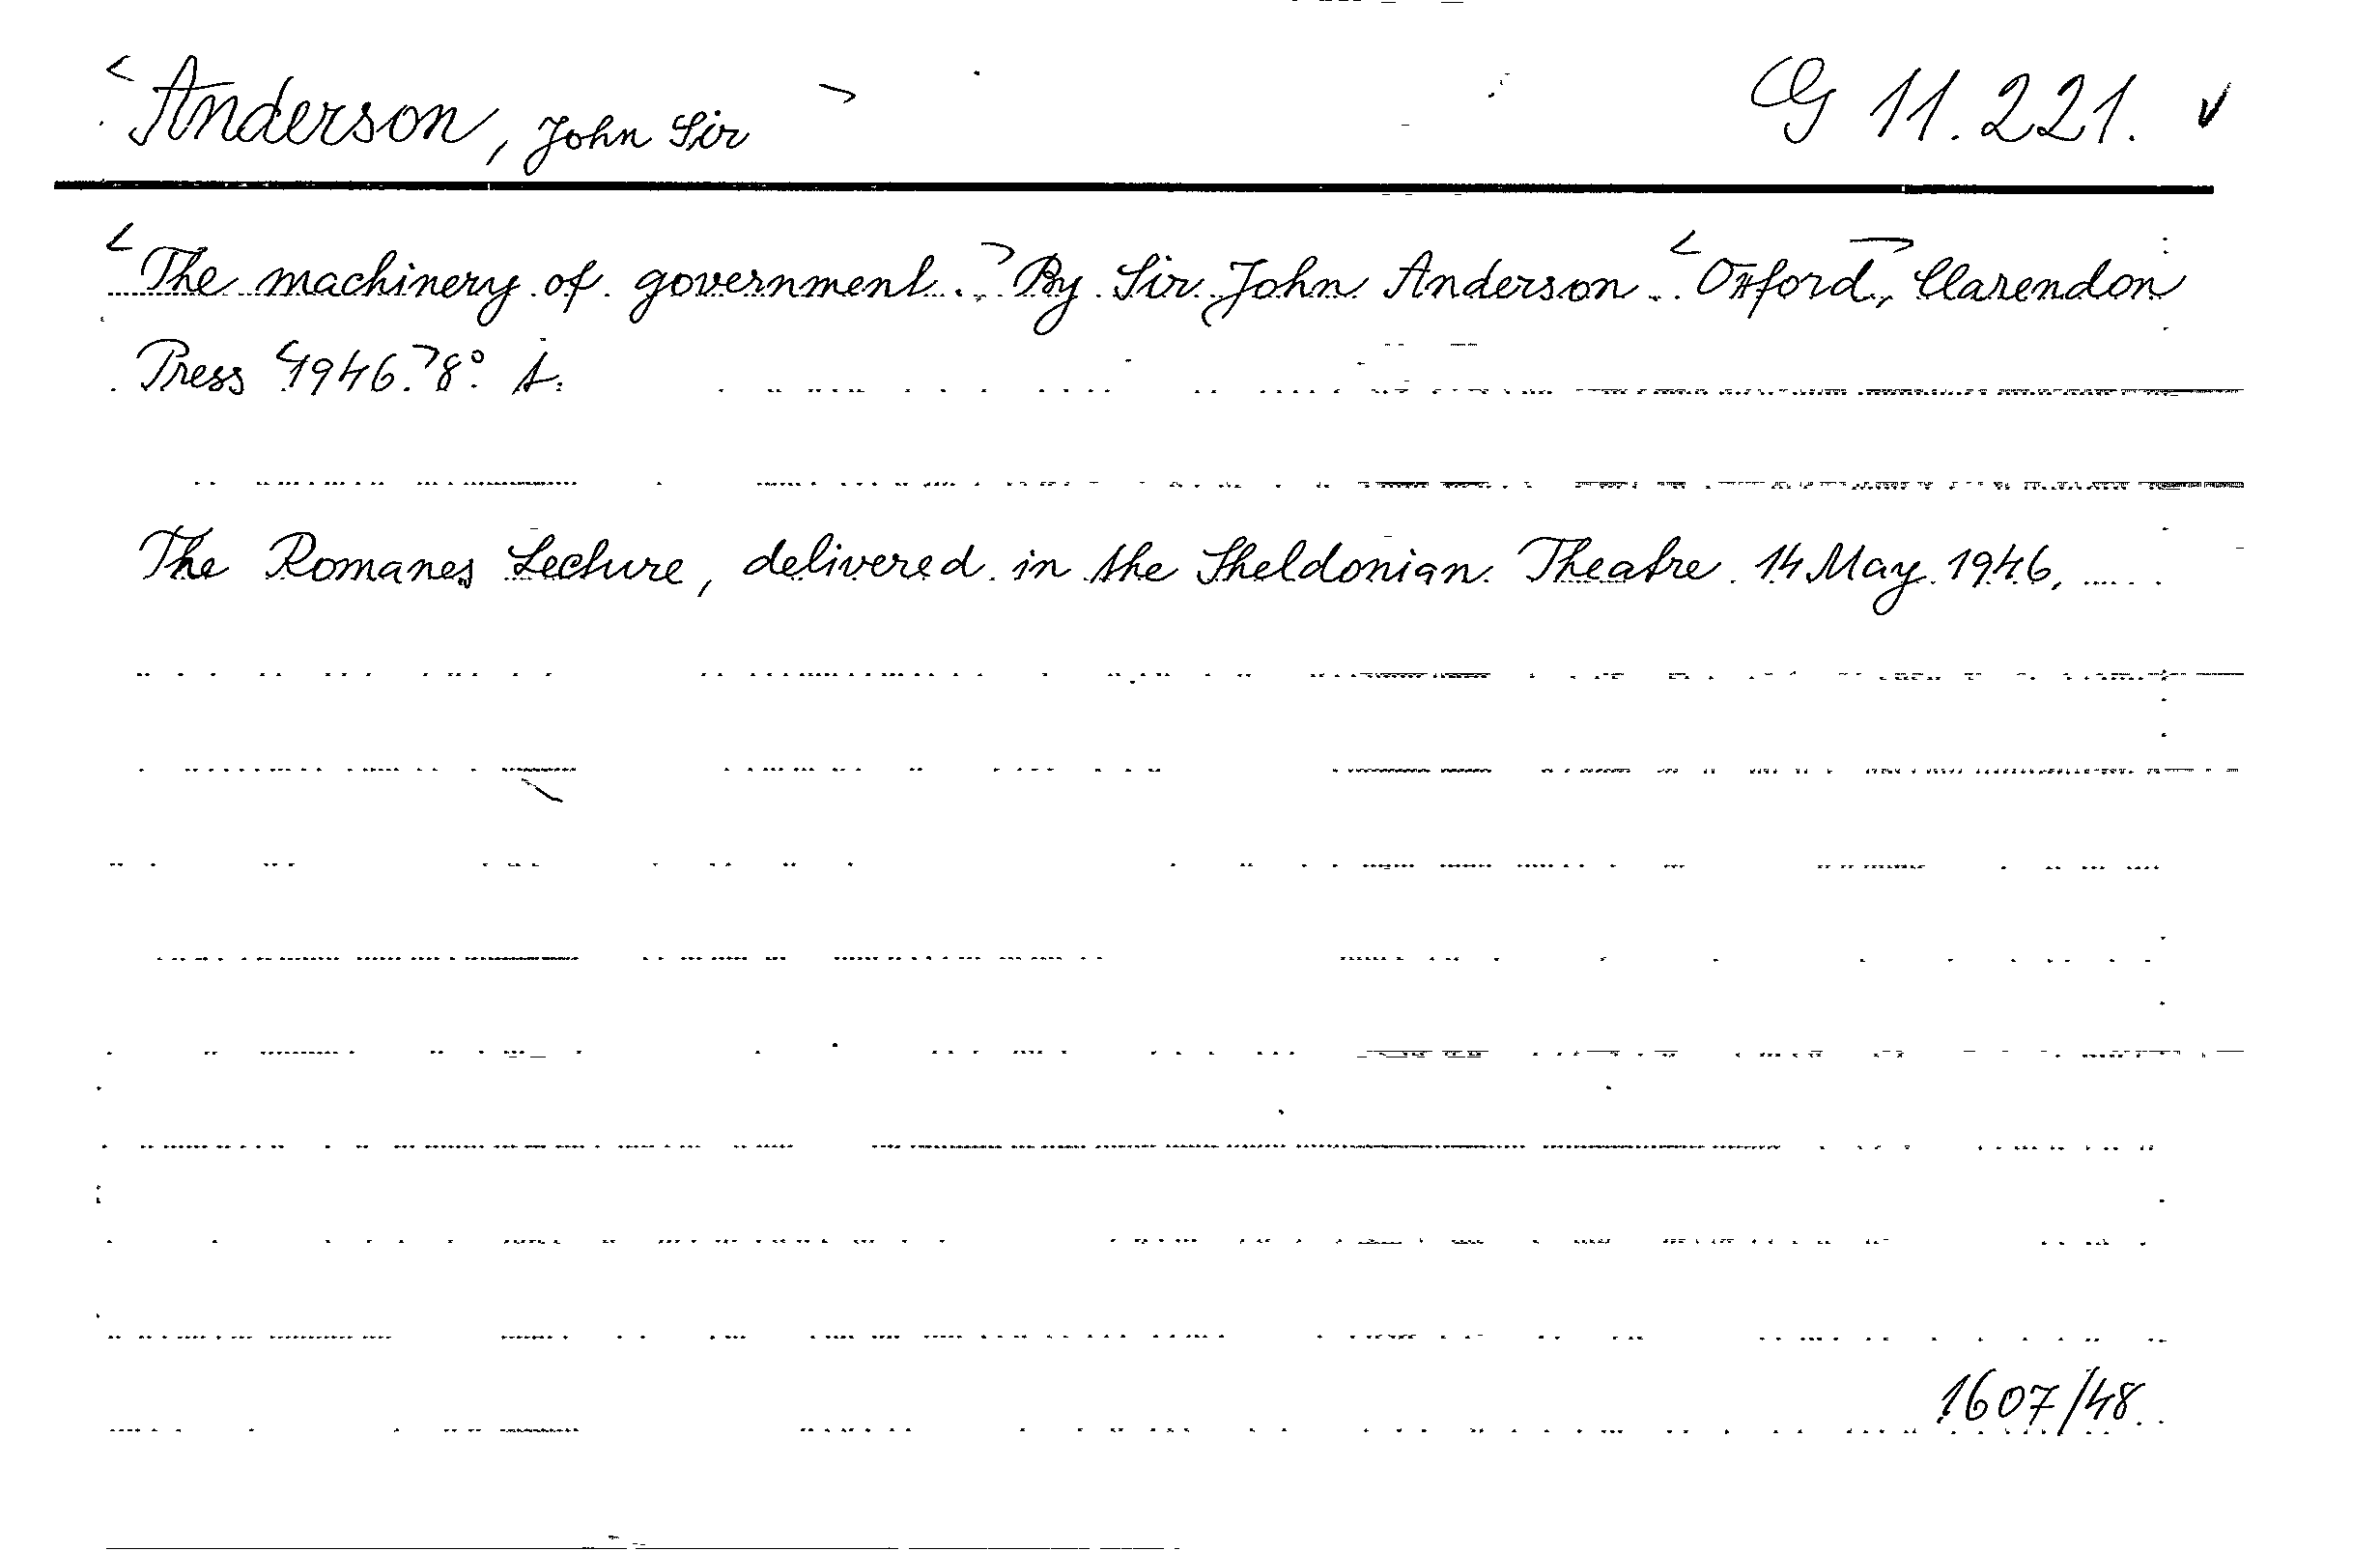 < Anderson, John Sir > G 11.221. ✓
< The machinery of government. > By Sir John Anderson. < Oxford >, Clarendon
Press < 1946. > 8° t.
The Romanes Lecture, delivered in the Sheldonian Theatre 14 May 1946.
1607/48.